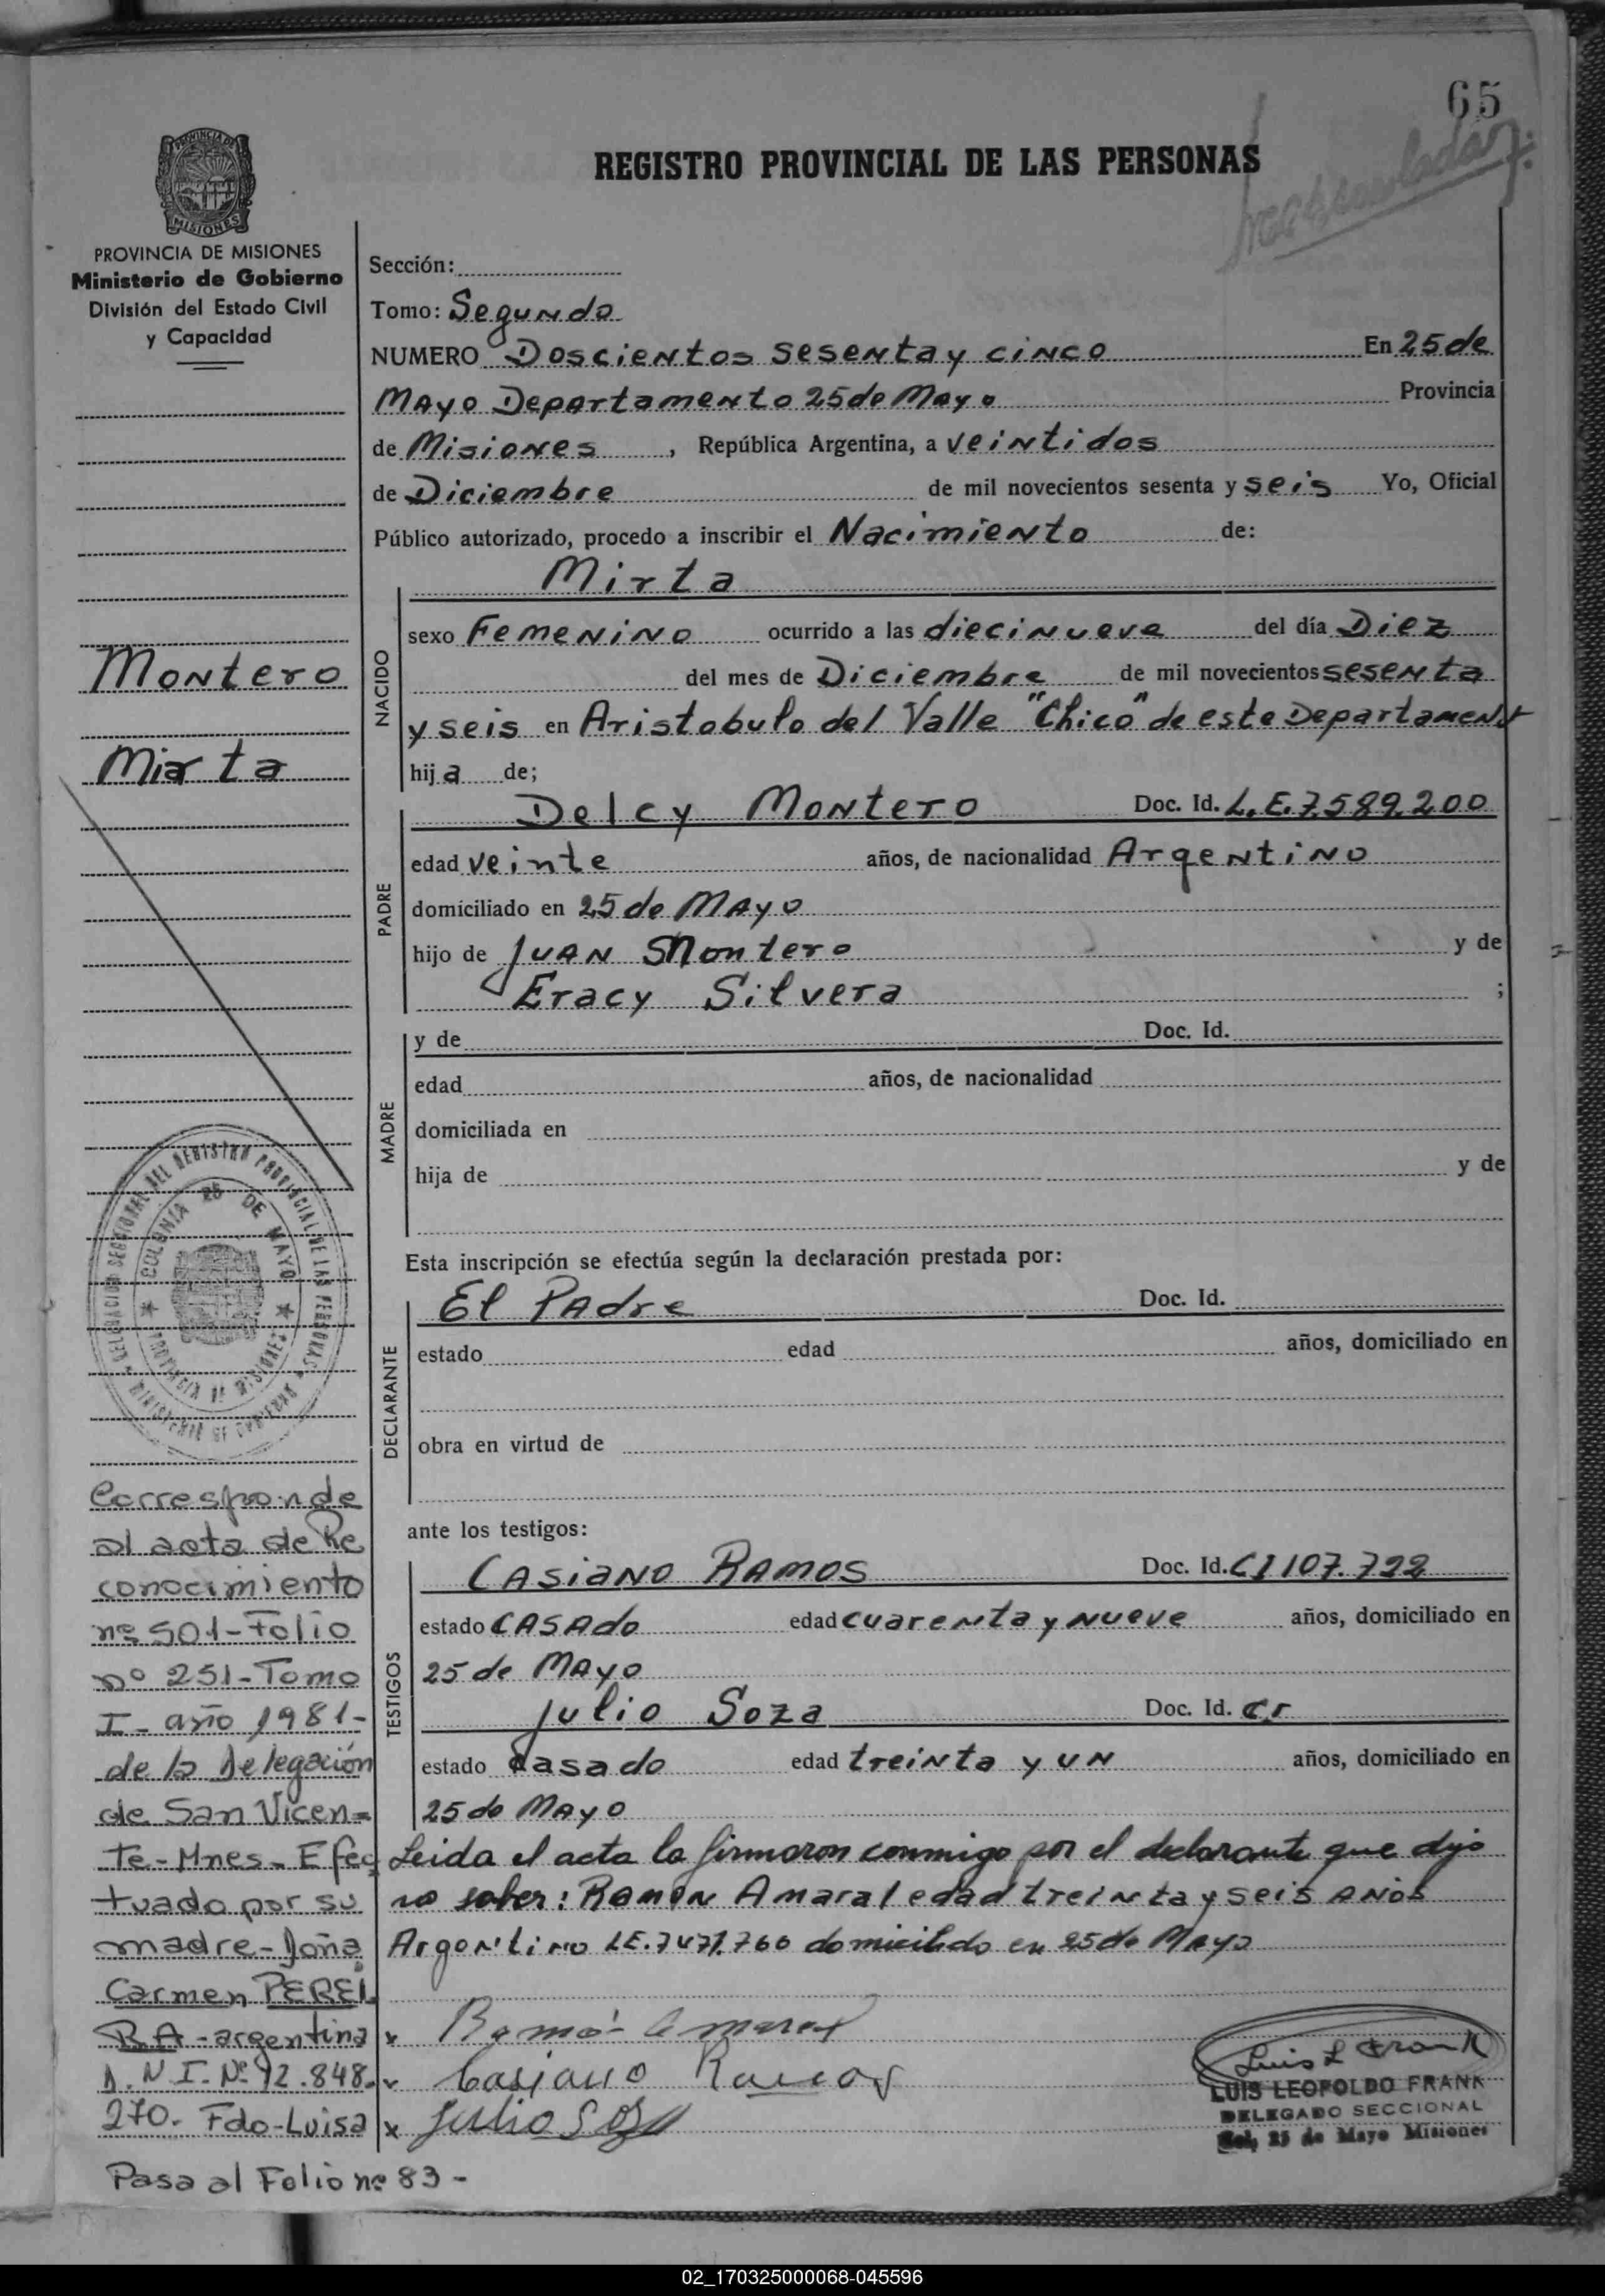 65
REGISTRO PROVINCIAL DE LAS PERSONAS
PROVINCIA DE
MISIONES
PROVINCIA DE MISIONES
Ministerio de Gobierno
División del Estado Civil
y Capacidad
Montero
Mirta
DELEGACION SECCIONAL DEL REGISTRO PROVINCIAL DE LAS PERSONAS
MINISTERIO DE GOBIERNO
COLONIA 25 DE MAYO
PROVINCIA DE MISIONES
Corresponde
al acta de Re
conocimiento
nº 501-Folio
nº 251-Tomo
I- año 1981-
de la Delegación
de San Vicen=
te-Mnes- Efec
tuado por su
madre-Doña
Carmen PEREI
RA-argentina
D.N.I.Nº 12.848.
270. Fdo-Luisa
Pasa al Folio nº 83-
Sección:
Tomo: Segundo
NUMERO Doscientos sesenta y cinco En 25 de
Mayo Departamento 25 de Mayo Provincia
de Misiones, República Argentina, a veintidos
de Diciembre de mil novecientos sesenta y seis Yo, Oficial
Público autorizado, procedo a inscribir el Nacimiento de:
NACIDO
Mirta
sexo Femenino ocurrido a las diecinueve del día Diez
del mes de Diciembre de mil novecientos sesenta
y seis en Aristobulo del Valle "Chico" de este Departament
hija de;
PADRE
Delcy Montero Doc. Id. L.E.7.589.200
edad veinte años, de nacionalidad Argentino
domiciliado en 25 de Mayo
hijo de Juan Montero y de
Eracy Silvera ;
MADRE
y de Doc. Id.
edad años, de nacionalidad
domiciliada en
hija de y de
Esta inscripción se efectúa según la declaración prestada por:
DECLARANTE
El Padre Doc. Id.
estado edad años, domiciliado en
obra en virtud de
ante los testigos:
TESTIGOS
Casiano Ramos Doc. Id. CI 107.722
estado Casado edad cuarenta y nueve años, domiciliado en
25 de Mayo
Julio Soza Doc. Id.
estado casado edad treinta y un años, domiciliado en
25 de Mayo
Leida el acta la firmaron conmigo por el declarante que dijo
no saber: Ramon Amaral edad treinta y seis años
Argentino LE.7471.760 domicilido en 25 de Mayo
x Ramó Amaral
Casiano Ramos
x Julio Soza
Luis L Frank
LUIS LEOPOLDO FRANK
DELEGADO SECCIONAL
Col. 25 de Mayo Misiones
02_170325000068-045596